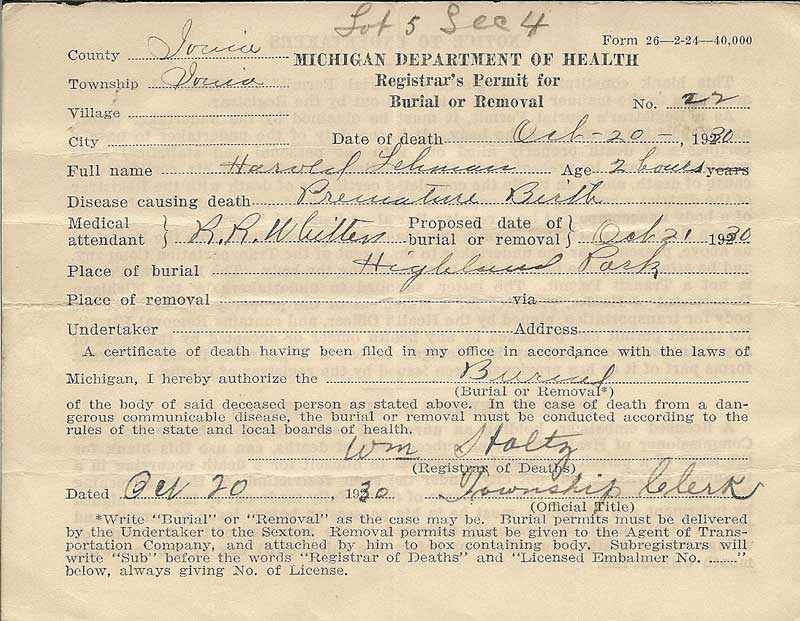 Lot 5 Sec 4
Form 26—2-24—40,000
County Ionia
MICHIGAN DEPARTMENT OF HEALTH
Township Ionia
Registrar's Permit for
Village
Burial or Removal No. 22
City Date of death Oct-20-, 1930
Full name Harold Lehman Age 2 hours years
Disease causing death Premature Birth
Medical attendant } R.R. Whitten Proposed date of burial or removal } Oct 21 1930
Place of burial Highland Park
Place of removal via
Undertaker Address
A certificate of death having been filed in my office in accordance with the laws of
Michigan, I hereby authorize the Burial
(Burial or Removal*)
of the body of said deceased person as stated above. In the case of death from a dan-
gerous communicable disease, the burial or removal must be conducted according to the
rules of the state and local boards of health.
Wm Stoltz
(Registrar of Deaths)
Dated Oct 20 1930 Township Clerk
(Official Title)
*Write "Burial" or "Removal" as the case may be. Burial permits must be delivered
by the Undertaker to the Sexton. Removal permits must be given to the Agent of Trans-
portation Company, and attached by him to box containing body. Subregistrars will
write "Sub" before the words "Registrar of Deaths" and "Licensed Embalmer No. ........"
below, always giving No. of License.